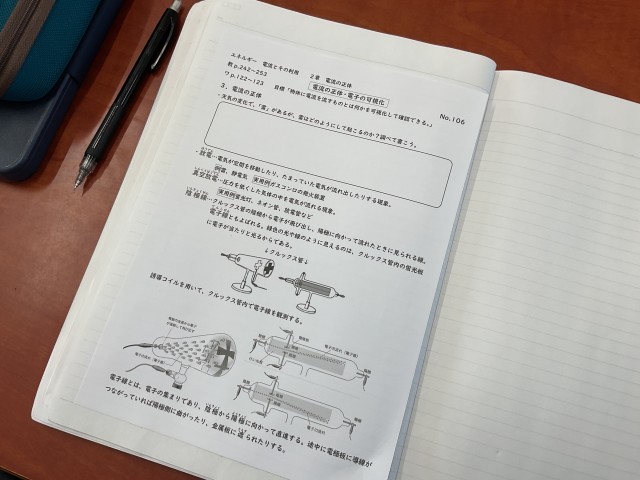 エネルギー 電流とその利用 2章 電流の正体
教p.242~253 電流の正体・電子の可視化
ワp.122~123 目標「物体に電流を流すものとは何かを可視化して確認できる。」 No.106
3. 電流の正体
・天気の変化で、「雷」があるが、雷はどのようにして起こるのか?調べて書こう。
・放電…電気が空間を移動したり、たまっていた電気が流れ出したりする現象。
例雷、静電気 実用例ガスコンロの発火装置
真空放電…圧力を低くした気体の中を電気が流れる現象。
実用例蛍光灯、ネオン管、放電管など
陰極線…クルックス管の陰極から電子が飛び出し、陽極に向かって流れたときに見られる線。
電子線ともよばれる。緑色の光や線のように見えるのは、クルックス管内の蛍光板
に電子が当たりと光るからである。
↓クルックス管↓
誘導コイルを用いて、クルックス管内で電子線を観測する。
電子の流れ(電子線)
電子線とは、電子の集まりであり、陰極から陽極に向かって直進する。途中に電極板に導線が
つながっていれば陽極側に曲がったり、金属板に遮られたりする。